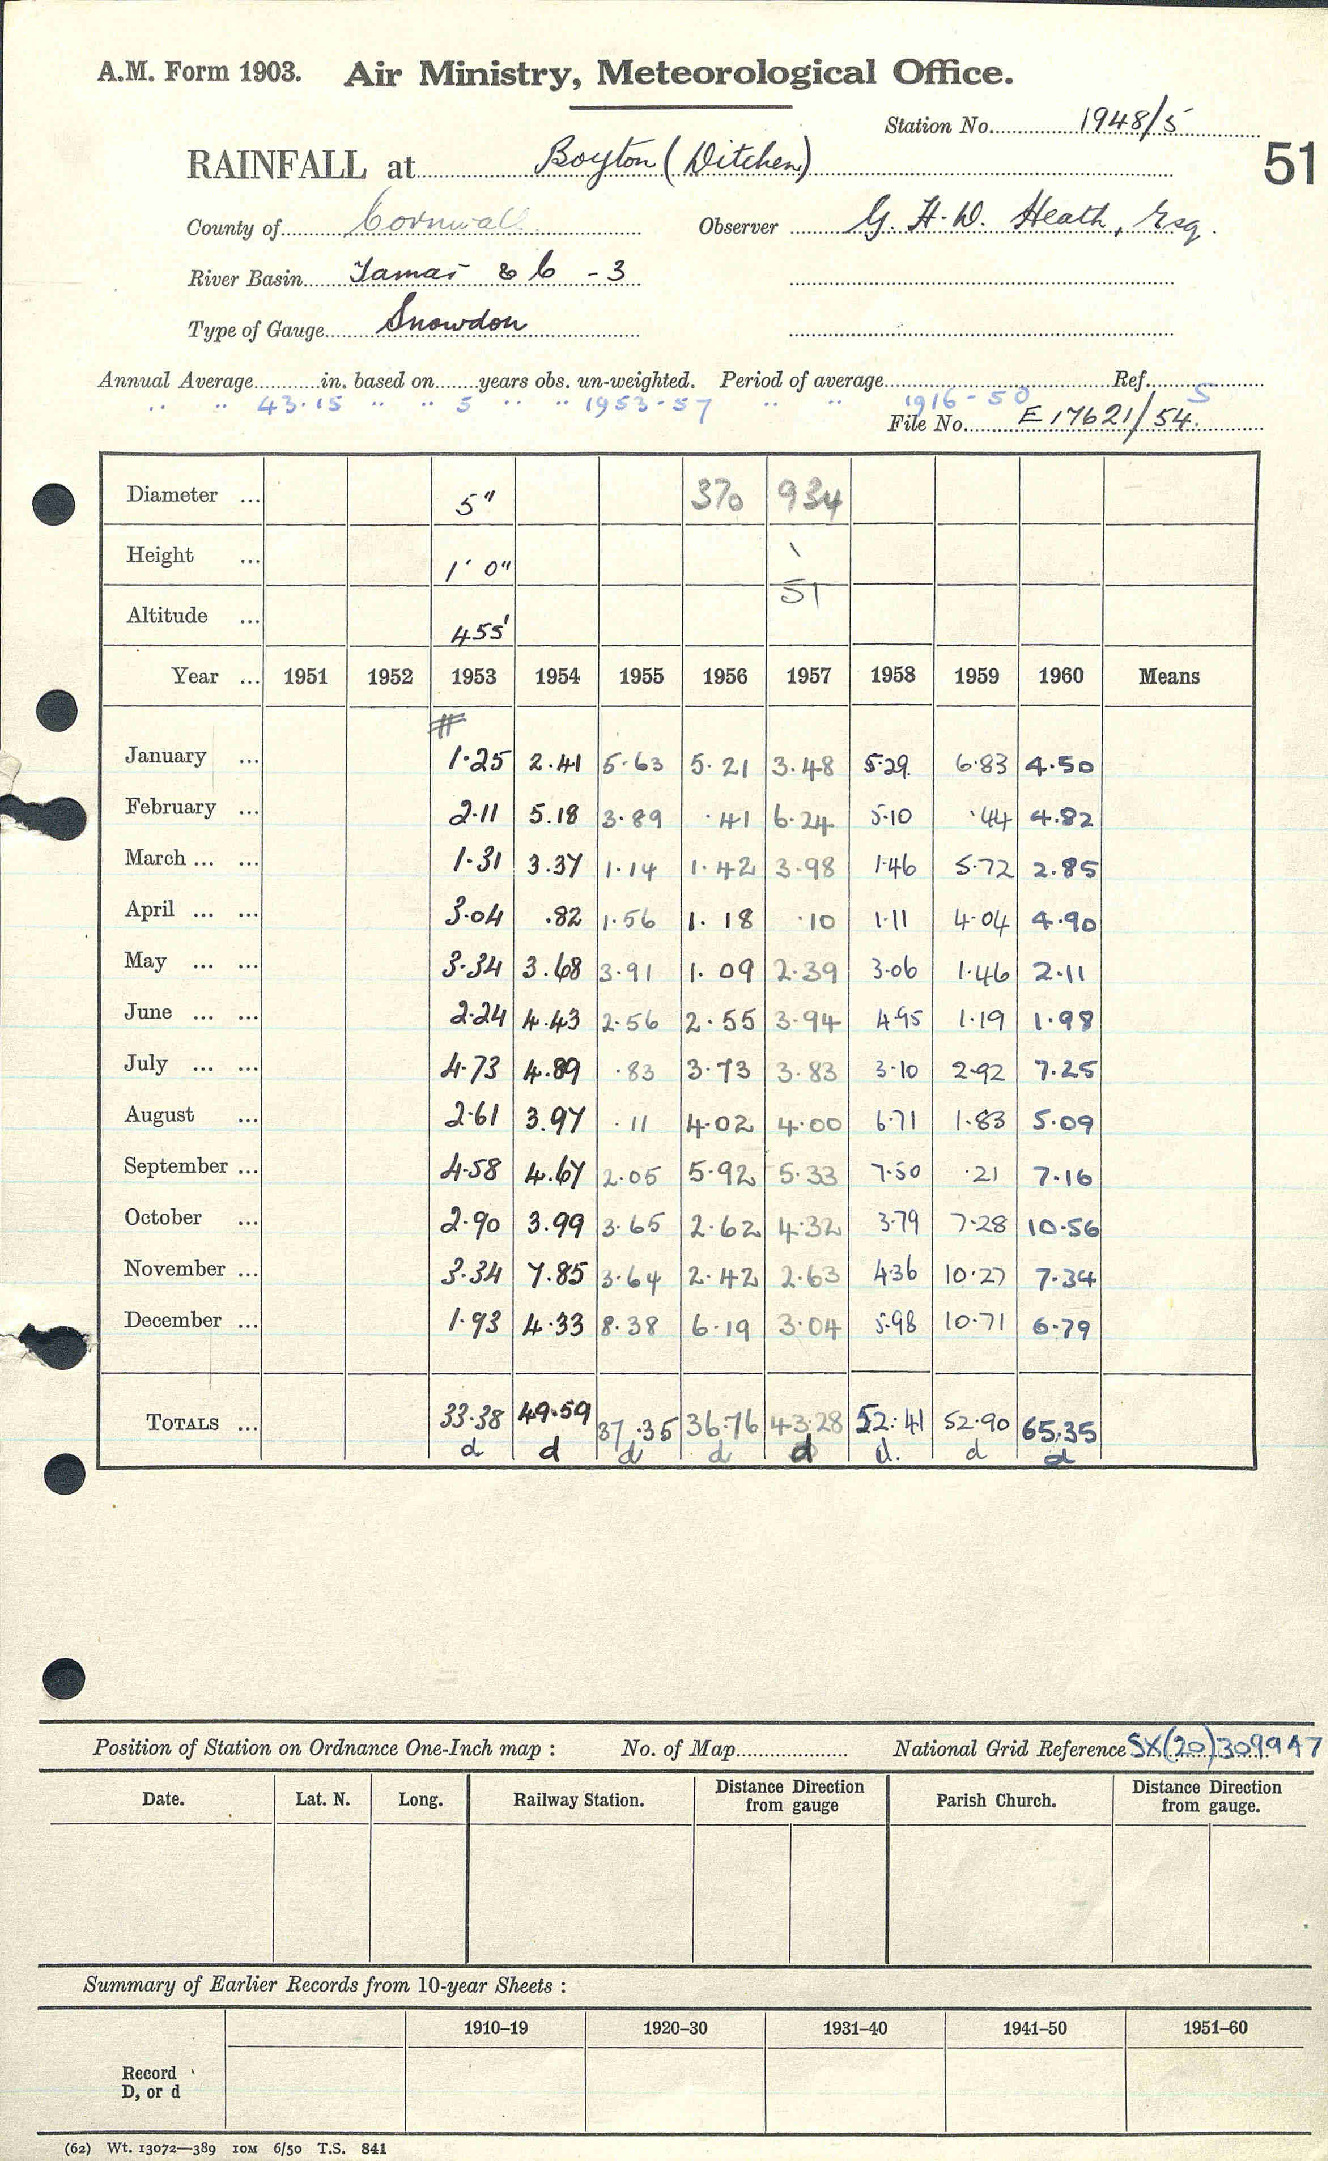 A.M. Form 1903. Air Ministry, Meteorological Office.
Station No. 1948/5
51
RAINFALL at Boyton (Ditchen)
County of Cornwall Observer G. H. W. Heath, Esq.
River Basin Tamar & C - 3
Type of Gauge Snowdon
Annual Average in. based on years obs. un-weighted. Period of average Ref.
" " 43.15 " " 5 " " 1953-57 " " 1916-50 S
File No. E 17621/54.
Diameter ... 5" 370 934
Height ... 1' 0"
51
Altitude ... 455'
Year ... 1951 1952 1953 1954 1955 1956 1957 1958 1959 1960 Means
January ... 1.25 2.41 5.63 5.21 3.48 5.29 6.83 4.50
February ... 2.11 5.18 3.89 .41 6.24 5.10 .44 4.82
March ... ... 1.31 3.37 1.14 1.42 3.98 1.46 5.72 2.85
April ... ... 3.04 .82 1.56 1.18 .10 1.11 4.04 4.90
May ... ... 3.34 3.68 3.91 1.09 2.39 3.06 1.46 2.11
June ... ... 2.24 4.43 2.56 2.55 3.94 4.95 1.19 1.98
July ... ... 4.73 4.89 .83 3.73 3.83 3.10 2.92 7.25
August ... 2.61 3.97 .11 4.02 4.00 6.71 1.83 5.09
September ... 4.58 4.67 2.05 5.92 5.33 7.50 .21 7.16
October ... 2.90 3.99 3.65 2.62 4.32 3.79 7.28 10.56
November ... 3.34 7.85 3.64 2.42 2.63 4.36 10.27 7.34
December ... 1.93 4.33 8.38 6.19 3.04 5.98 10.71 6.79
TOTALS ... 33.38 49.59 37.35 36.76 43.28 52.41 52.90 65.35
d d d d d d. d d
Position of Station on Ordnance One-Inch map : No. of Map National Grid Reference SX(20)309947
Date. Lat. N. Long. Railway Station. Distance from gauge Direction Parish Church. Distance from gauge. Direction
Summary of Earlier Records from 10-year Sheets :
1910–19 1920–30 1931–40 1941–50 1951–60
Record
D, or d
(62) Wt. 13072—389 10M 6/50 T.S. 841